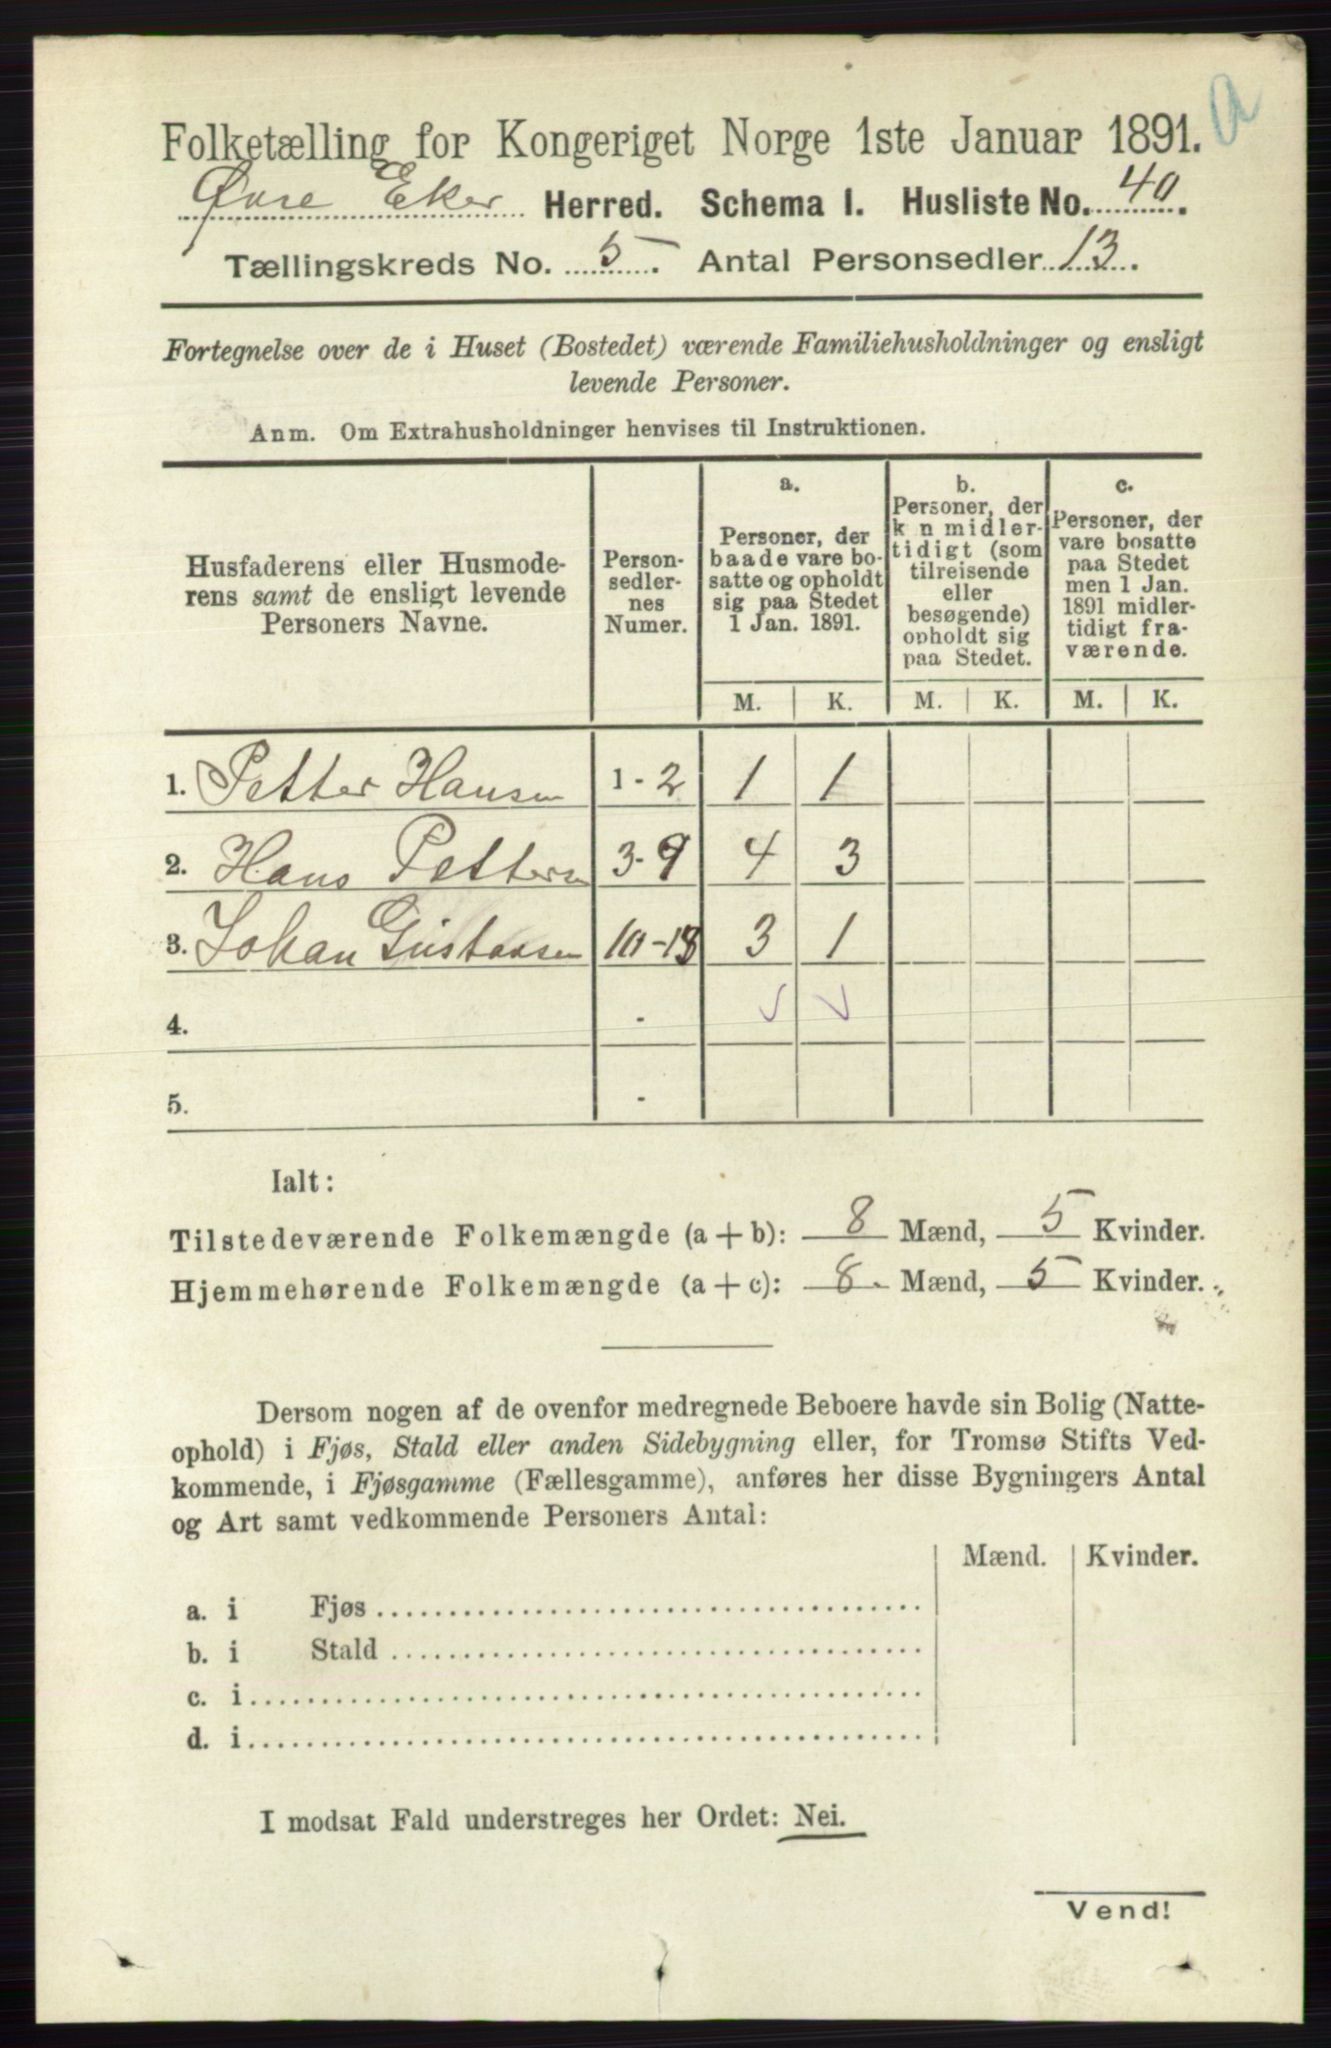 a
Folketælling for Kongeriget Norge 1ste Januar 1891.
Øvre Eker Herred. Schema I. Husliste No. 40.
Tællingskreds No. 5. Antal Personsedler 13.
Fortegnelse over de i Huset (Bostedet) værende Familiehusholdninger og ensligt
levende Personer.
Anm. Om Extrahusholdninger henvises til Instruktionen.
Husfaderens eller Husmode-
rens samt de ensligt levende
Personers Navne.
Person-
sedler-
nes
Numer.
a.
Personer, der
baade vare bo-
satte og opholdt
sig paa Stedet
1 Jan. 1891.
b.
Personer, der
k n midler-
tidigt (som
tilreisende
eller
besøgende)
opholdt sig
paa Stedet.
c.
Personer, der
vare bosatte
paa Stedet
men 1 Jan.
1891 midler-
tidigt fra-
værende.
M. K. M. K. M. K.
1. Petter Hansen 1-2 1 1
2. Hans Pettersen 3-9 4 3
3. Johan Gustavsen 10-13 3 1
4. -
5. -
Ialt:
Tilstedeværende Folkemængde (a+b): 8 Mænd, 5 Kvinder.
Hjemmehørende Folkemængde (a+c): 8. Mænd, 5 Kvinder.
Dersom nogen af de ovenfor medregnede Beboere havde sin Bolig (Natte-
ophold) i Fjøs, Stald eller anden Sidebygning eller, for Tromsø Stifts Ved-
kommende, i Fjøsgamme (Fællesgamme), anføres her disse Bygningers Antal
og Art samt vedkommende Personers Antal:
Mænd. Kvinder.
a. i Fjøs
b. i Stald
c. i
d. i
I modsat Fald understreges her Ordet: Nei.
Vend!